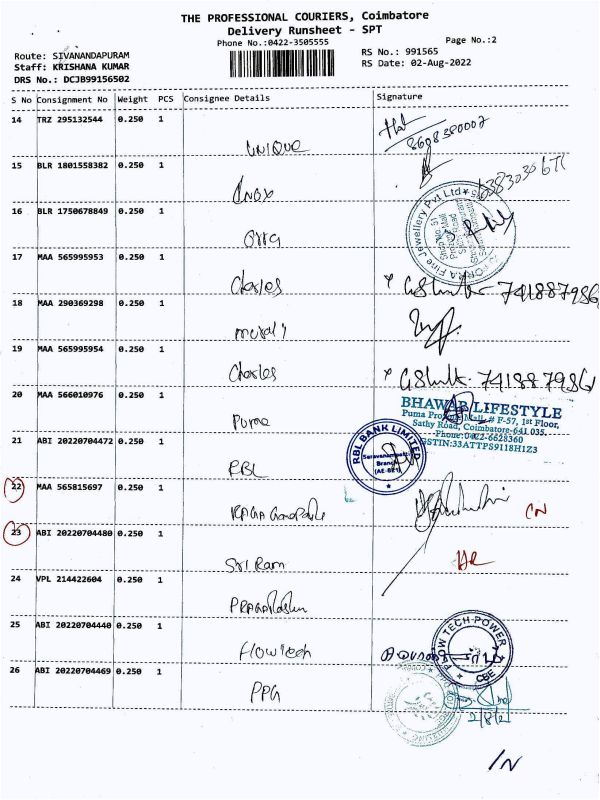 THE PROFESSIONAL COURIERS, Coimbatore
Delivery Runsheet - SPT
Phone No.:0422-3505555
Page No.:2
Route: SIVANANDAPURAM
RS No.: 991565
Staff: KRISHANA KUMAR
RS Date: 02-Aug-2022
DRS No.: DCJB99156502
S No Consignment No Weight PCS Consignee Details Signature
14 TRZ 295132544 0.250 1
8608380007
UNIQUE
15 BLR 1801558382 0.250 1
INOX
16 BLR 1750678849 0.250 1
Fine Jewellery Pvt Ltd
Orra
17 MAA 565995953 0.250 1
Charles
18 MAA 290369298 0.250 1
19 MAA 565995954 0.250 1
Charles 7418879861
20 MAA 566010976 0.250 1
BHAWAR LIFESTYLE
Puma Prozone Mall, # F-57, 1st Floor,
Sathy Road, Coimbatore-641 035.
Phone:0422-6628360
GSTIN:33ATTPS9118H1Z3
Puma
21 ABI 20220704472 0.250 1
RBL BANK LIMITED
Saravanampatti
Branch
RBL
22 MAA 565815697 0.250 1
CN
23 ABI 20220704480 0.250 1
Sri Ram
24 VPL 214422604 0.250 1
25 ABI 20220704440 0.250 1
FLOW TECH-POWER
CBE
Flowtech
26 ABI 20220704469 0.250 1
PPG
IN